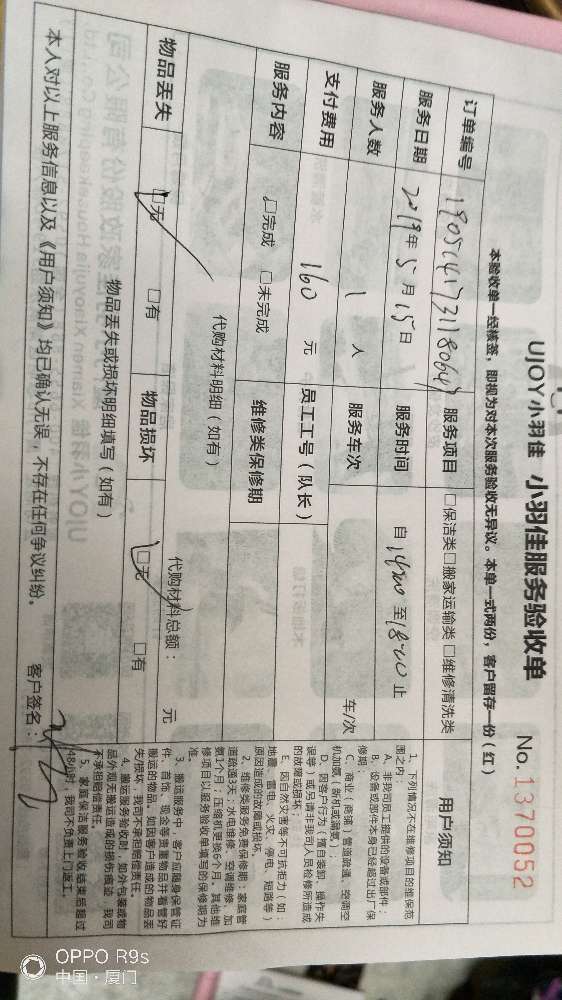 UJOY 小羽佳 小羽佳服务验收单
No. 1370052
本验收单一经核签，即视为对本次服务验收无异议。本单一式两份，客户留存一份（红）
订单编号 服务项目 □保洁类□搬家运输类□维修清洗类
服务日期 2019年5月15日 服务时间 自1400至1800止
服务人数 1 人 服务车次 车/次
支付费用 160 元 员工工号（队长）
服务内容 □完成 □未完成 维修类保修期
代购材料明细（如有） 代购材料总额： 元
物品丢失 □无 □有 物品损坏 □无 □有
物品丢失或损坏明细填写（如有）
本人对以上服务信息以及《用户须知》均已确认无误，不存在任何争议纠纷。 客户签名：
用户须知
1、下列情况不在维修项目的维保范
围之内：
A、非我司员工提供的设备或部件；
B、设备或部件本身已经超过出厂保
修期；
C、商业（商铺）管道疏通、空调空
机加氟（新机或漏氟）；
D、因客户行为（擅自装卸、操作失
误等）或另请非我司人员检修所造成
的故障或损坏；
E、因自然灾害等不可抗拒力（如：
地震、雷电、火灾、停电、短路等）
原因造成的故障或损坏。
2、维修类服务免费保修期：家庭管
道疏通3天；水电维修、空调维修、加
氨1个月；压缩机更换6个月。其他维
修项目以服务验收单填写的保修期为
准。
3、搬运服务中，客户应随身保管证
件、首饰、现金等贵重物品并看管好
搬运的物品。如因客户造成的物品丢
失/损坏，我司不承担赔偿责任。
4、搬运服务验收时，如外包装或物
品外观无搬运造成的损伤痕迹，我司
不承担赔偿责任。
5、家庭保洁服务验收结束后超过
48小时，我司不负责上门返工。
OPPO R9s
中国·厦门